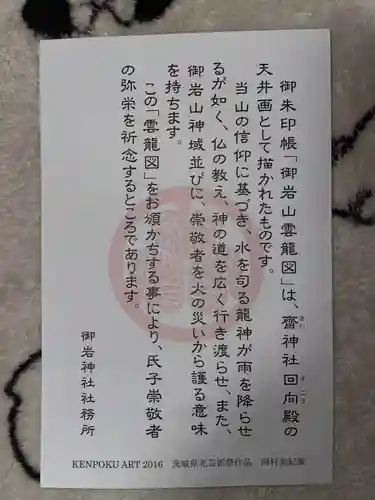 御朱印帳「御岩山雲龍図」は、齋神社回向殿の
天井画として描かれたものです。
当山の信仰に基づき、水を司る龍神が雨を降らせ
るが如く、仏の教え、神の道を広く行き渡らせ、また、
御岩山神域並びに、崇敬者を火の災いから護る意味
を持ちます。
この「雲龍図」をお頒かちする事により、氏子崇敬者
の弥栄を祈念するところであります。
御岩神社社務所
KENPOKU ART 2016 茨城県北芸術祭作品 岡村美紀筆